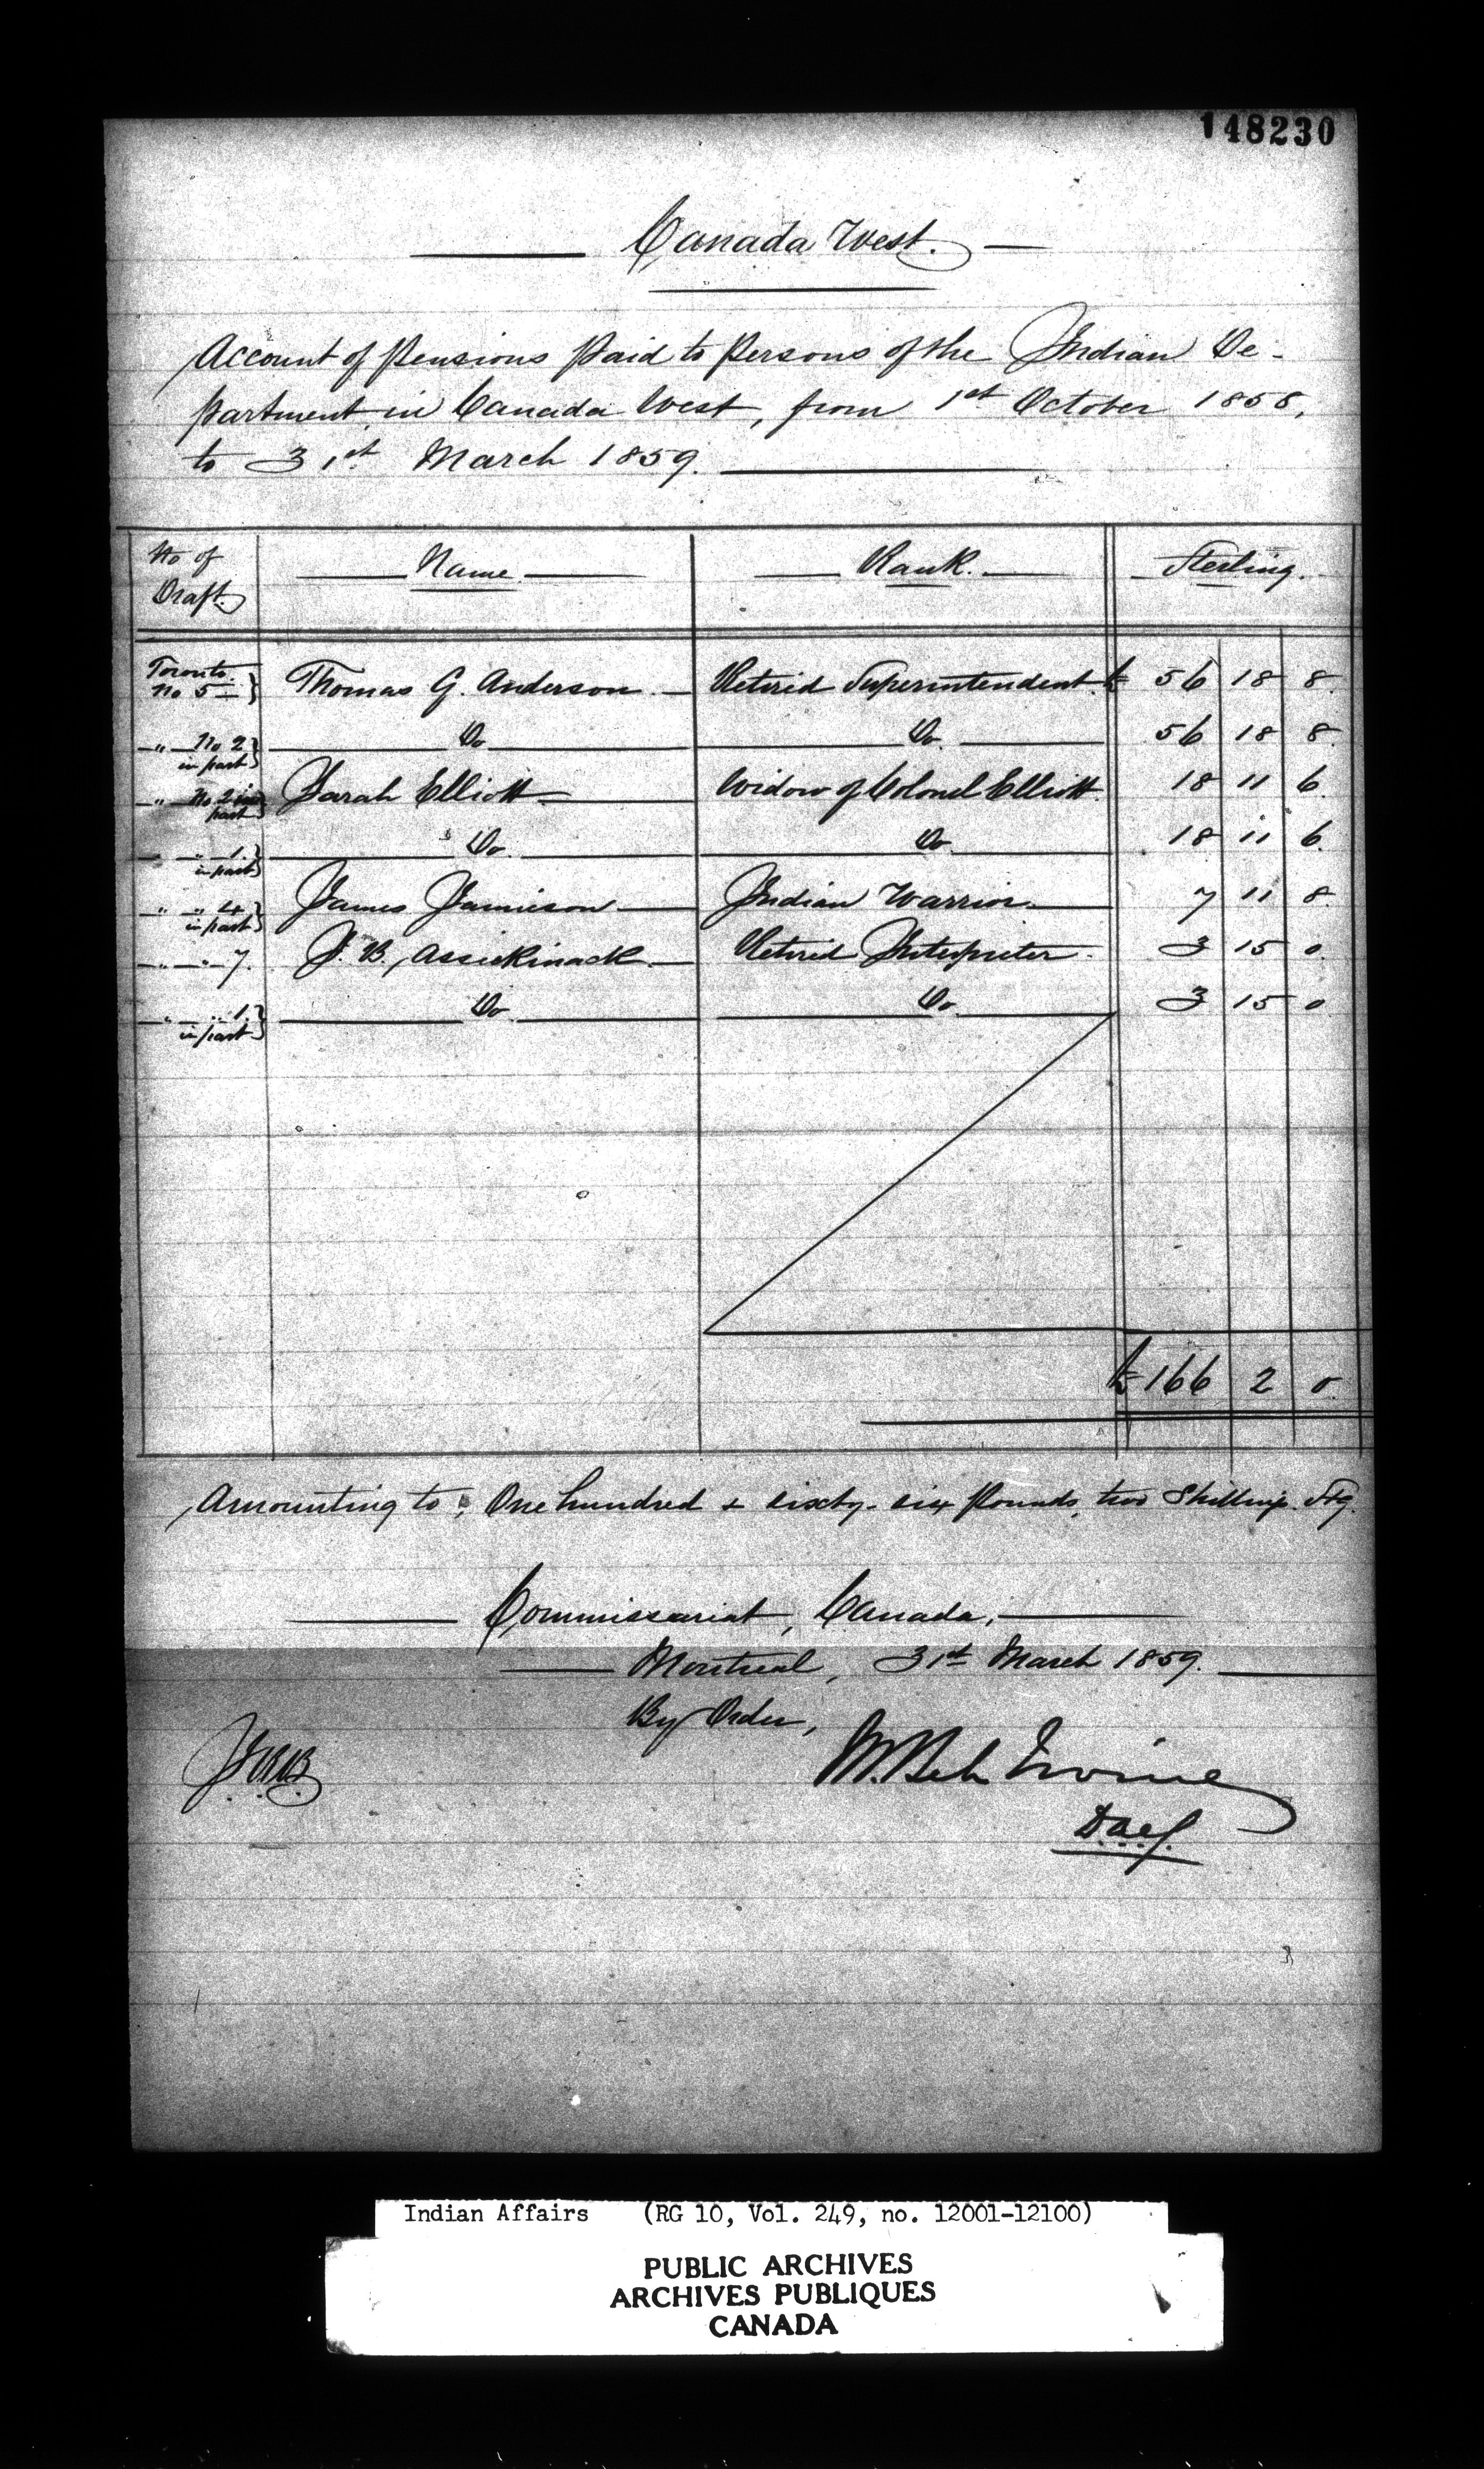 148230
Canada West.
Account of Pensions Paid to Persons of the Indian De-
partment, in Canada West, from 1st October 1858,
to 31st March 1859.
No of Draft. Name Rank. Sterling.
Toronto. No 5 } Thomas G. Anderson. Retired Superintendent. £ 56 18 8.
" No 2 in part } Do Do. 56 18 8.
" No 2 in part } Sarah Elliott Widow of Colonel Elliott. 18 11 6.
" " 1. in part } Do. Do 18 11 6.
" " 4 in part } James Jamieson Indian Warrior. 7 11 8.
" " 7. J. B. Assickinack Retired Interpreter. 3 15 0.
" " 1. in part } Do. Do. 3 15 0
£ 166 2 0.
Amounting to, One hundred & sixty-six Pounds, two Shillings. Stg.
Commissariat, Canada,
Montreal, 31st March 1859.
By Order,
Irvine
Indian Affairs (RG 10, Vol. 249, no. 12001-12100)
PUBLIC ARCHIVES
ARCHIVES PUBLIQUES
CANADA